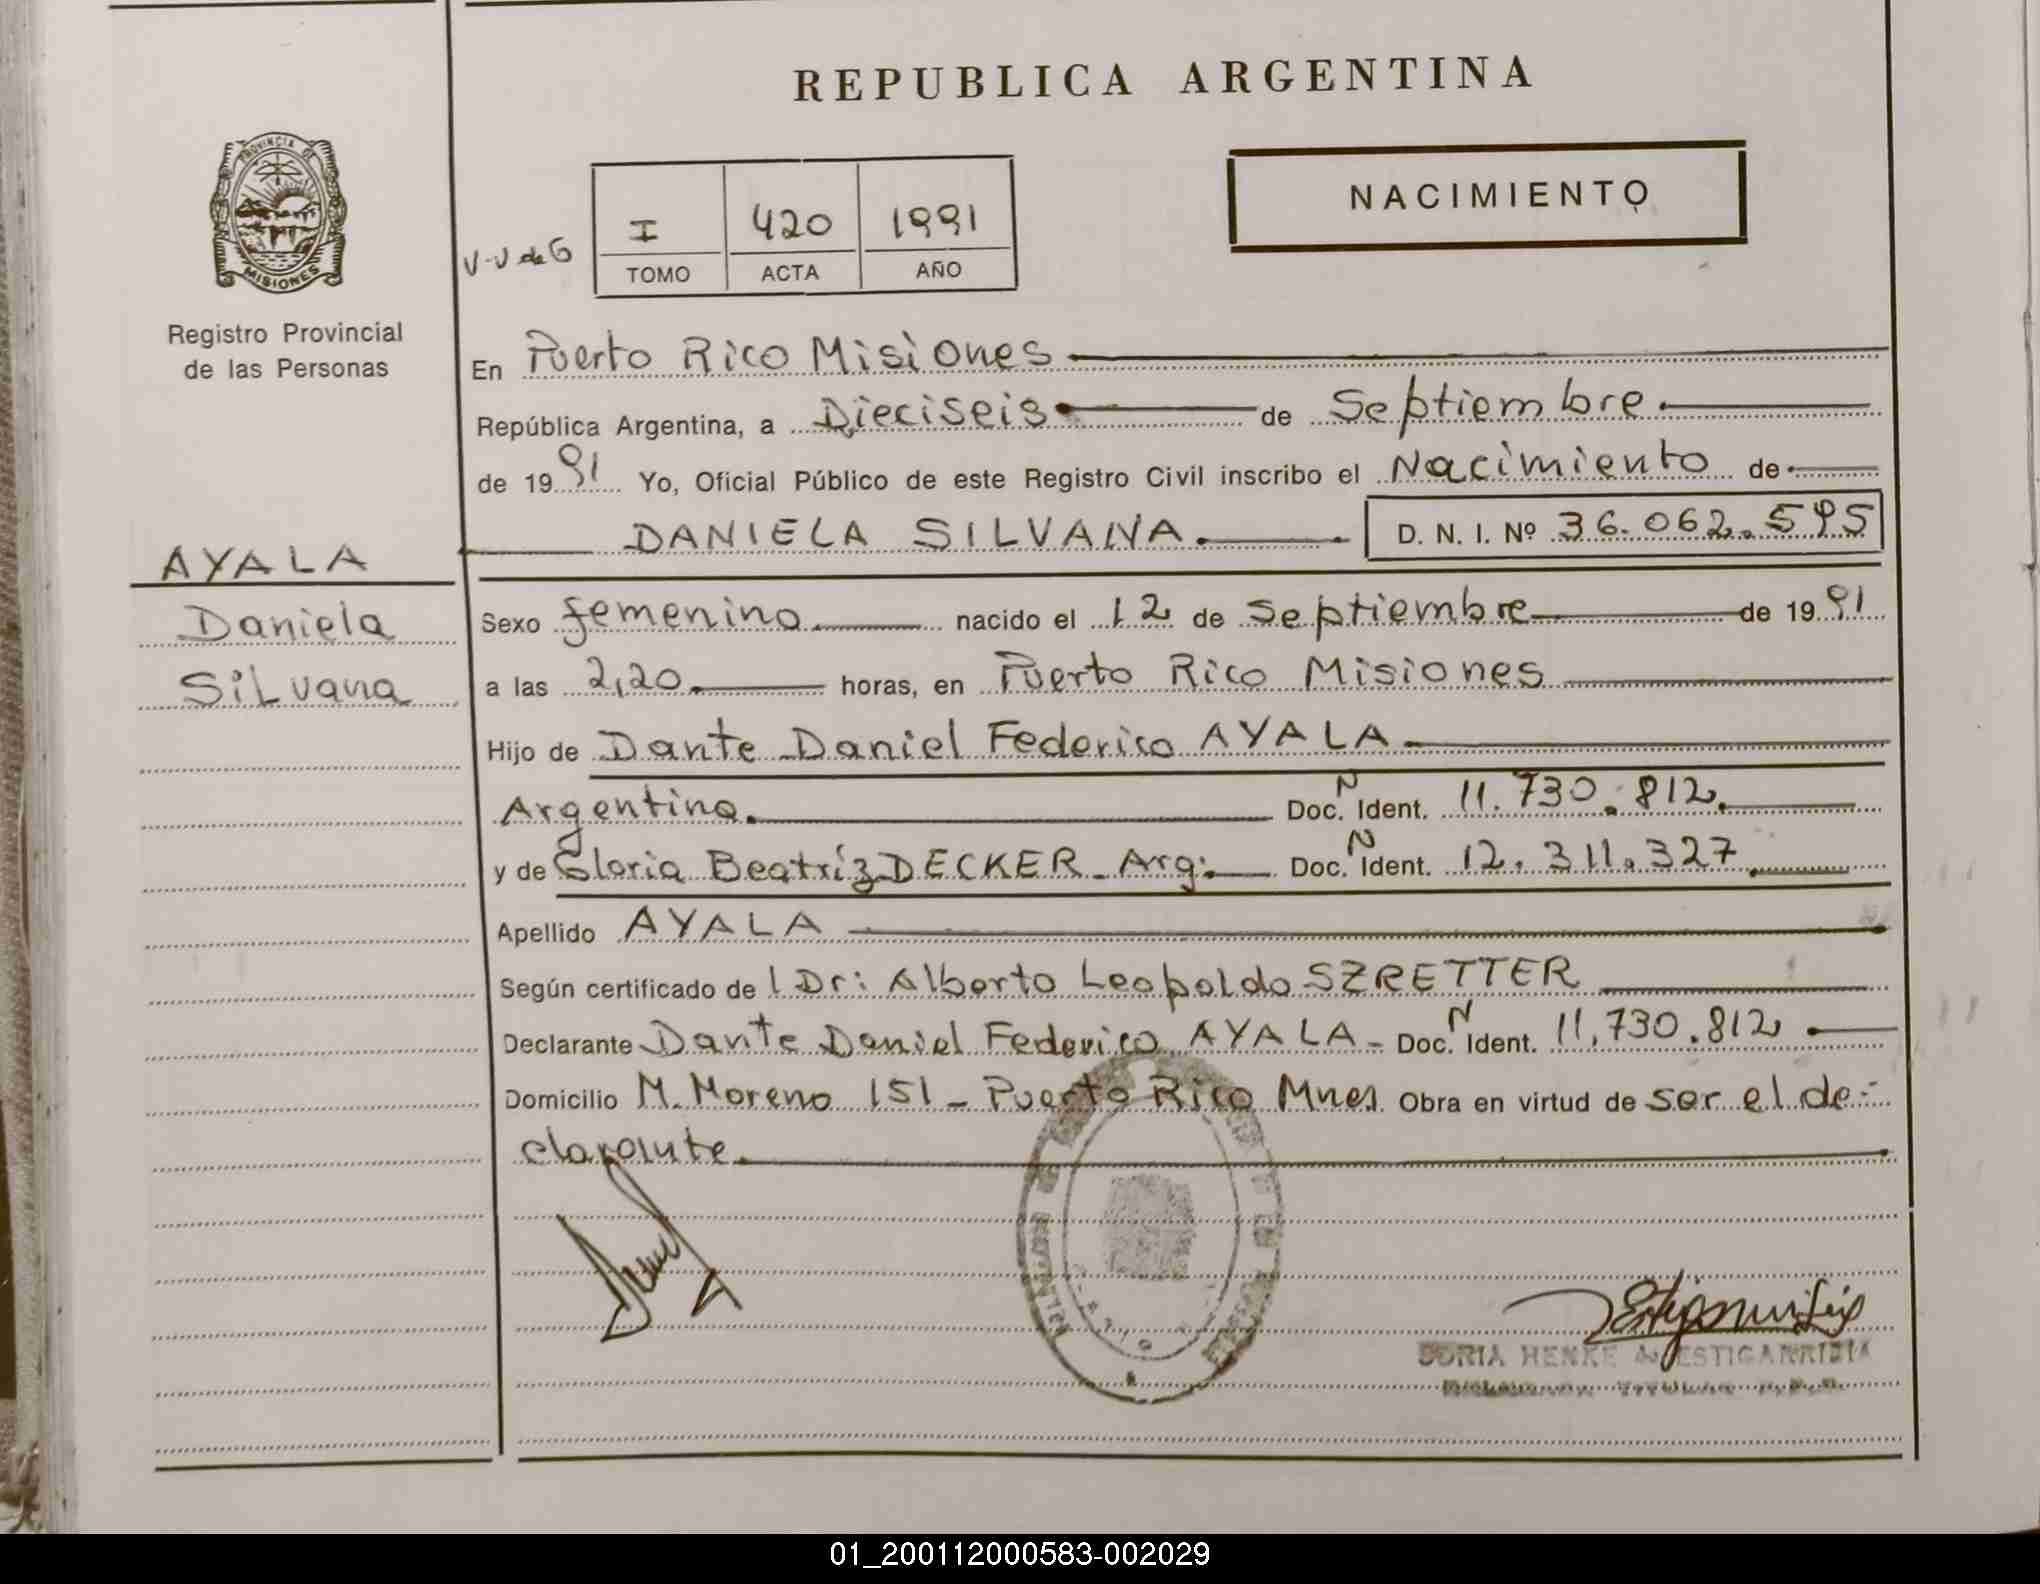 REPUBLICA ARGENTINA
PROVINCIA DE
MISIONES
Registro Provincial
de las Personas
NACIMIENTO
V-V de G
I 420 1991
TOMO ACTA AÑO
En Puerto Rico Misiones
República Argentina, a Dieciseis de Septiembre
de 1991 Yo, Oficial Público de este Registro Civil inscribo el Nacimiento de
DANIELA SILVANA D. N. I. Nº 36.062.595
AYALA
Daniela
Silvana
Sexo femenino nacido el 12 de Septiembre de 1991
a las 2,20 horas, en Puerto Rico Misiones
Hijo de Dante Daniel Federico AYALA
Argentino. Doc. N Ident. 11.730.812.
y de Gloria Beatríz DECKER - Arg: Doc. N Ident. 12.311.327
Apellido AYALA
Según certificado de l Dr: Alberto Leopoldo SZRETTER
Declarante Dante Daniel Federico AYALA - Doc. N Ident. 11.730.812
Domicilio M. Moreno 151 - Puerto Rico Mnes Obra en virtud de ser el de-
clarante.
HENKE ESTIGARRIBIA
TITULAR
01_200112000583-002029